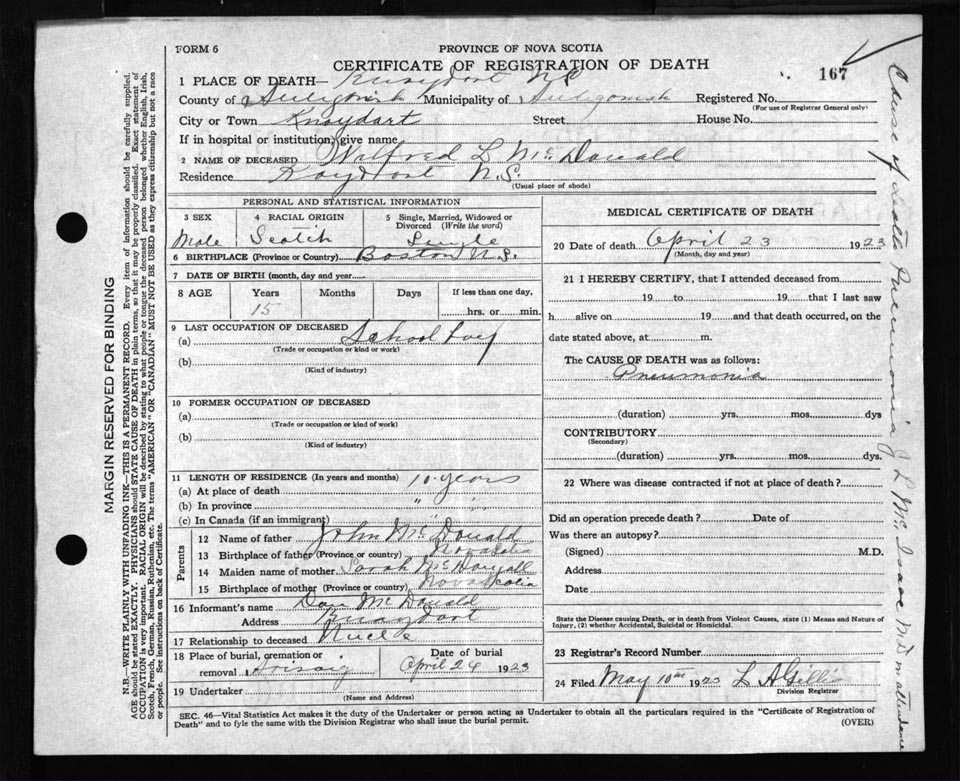 FORM 6
PROVINCE OF NOVA SCOTIA
CERTIFICATE OF REGISTRATION OF DEATH
167
1 PLACE OF DEATH— Knoydart N.S.
County of Antigonish Municipality of Antigonish Registered No.
(For use of Registrar General only)
City or Town Knoydart Street House No.
If in hospital or institution, give name
2 NAME OF DECEASED Wilfred L McDonald
Residence N.S.
(Usual place of abode)
PERSONAL AND STATISTICAL INFORMATION
3 SEX
Male
4 RACIAL ORIGIN
Scotch
5 Single, Married, Widowed or Divorced (Write the word)
Single
6 BIRTHPLACE (Province or Country) Boston
7 DATE OF BIRTH (month, day and year)
8 AGE Years Months Days If less than one day,
15 hrs. or min.
9 LAST OCCUPATION OF DECEASED
(a) School boy
(Trade or occupation or kind or work)
(b)
(Kind of industry)
10 FORMER OCCUPATION OF DECEASED
(a)
(Trade or occupation or kind of work)
(b)
(Kind of industry)
11 LENGTH OF RESIDENCE (In years and months)
(a) At place of death 10 years
(b) In province " "
(c) In Canada (if an immigrant) " "
Parents
12 Name of father John McDonald
13 Birthplace of father (Province or country) Nova Scotia
14 Maiden name of mother Sarah McDougall
15 Birthplace of mother (Province or country) Nova Scotia
16 Informant's name Dan McDonald
Address Knoydart
17 Relationship to deceased Uncle
18 Place of burial, cremation or removal Arisaig
Date of burial
April 24 1923
19 Undertaker
(Name and Address)
MEDICAL CERTIFICATE OF DEATH
20 Date of death April 23 1923
(Month, day and year)
21 I HEREBY CERTIFY, that I attended deceased from
19 to 19 that I last saw
h alive on 19 and that death occurred, on the
date stated above, at m.
The CAUSE OF DEATH was as follows:
Pneumonia
(duration) yrs. mos. dys
CONTRIBUTORY
(Secondary)
(duration) yrs. mos. dys.
22 Where was disease contracted if not at place of death?
Did an operation precede death? Date of
Was there an autopsy?
(Signed) M.D.
Address
Date
State the Disease causing Death, or in death from Violent Causes, state (1) Means and Nature of
Injury, (2) whether Accidental, Suicidal or Homicidal.
23 Registrar's Record Number
24 Filed May 10th 1923 L A Gillis
Division Registrar
SEC. 46—Vital Statistics Act makes it the duty of the Undertaker or person acting as Undertaker to obtain all the particulars required in the "Certificate of Registration of
Death" and to fyle the same with the Division Registrar who shall issue the burial permit.
(OVER)
MARGIN RESERVED FOR BINDING
N.B.—WRITE PLAINLY WITH UNFADING INK—THIS IS A PERMANENT RECORD. Every item of information should be carefully supplied.
AGE should be stated EXACTLY. PHYSICIANS should STATE CAUSE OF DEATH in plain terms, so that it may be properly classified. Exact statement of
OCCUPATION is very important. RACIAL ORIGIN will be described by stating to what people or tongue the deceased person belonged whether English, Irish,
Scotch, French, German, Russian, Ruthenian, etc. The terms "AMERICAN" OR "CANADIAN" MUST NOT BE USED as they express citizenship but not a race
or people. See instructions on back of Certificate.
Cause of death Pneumonia J L McIsaac M D in attendance